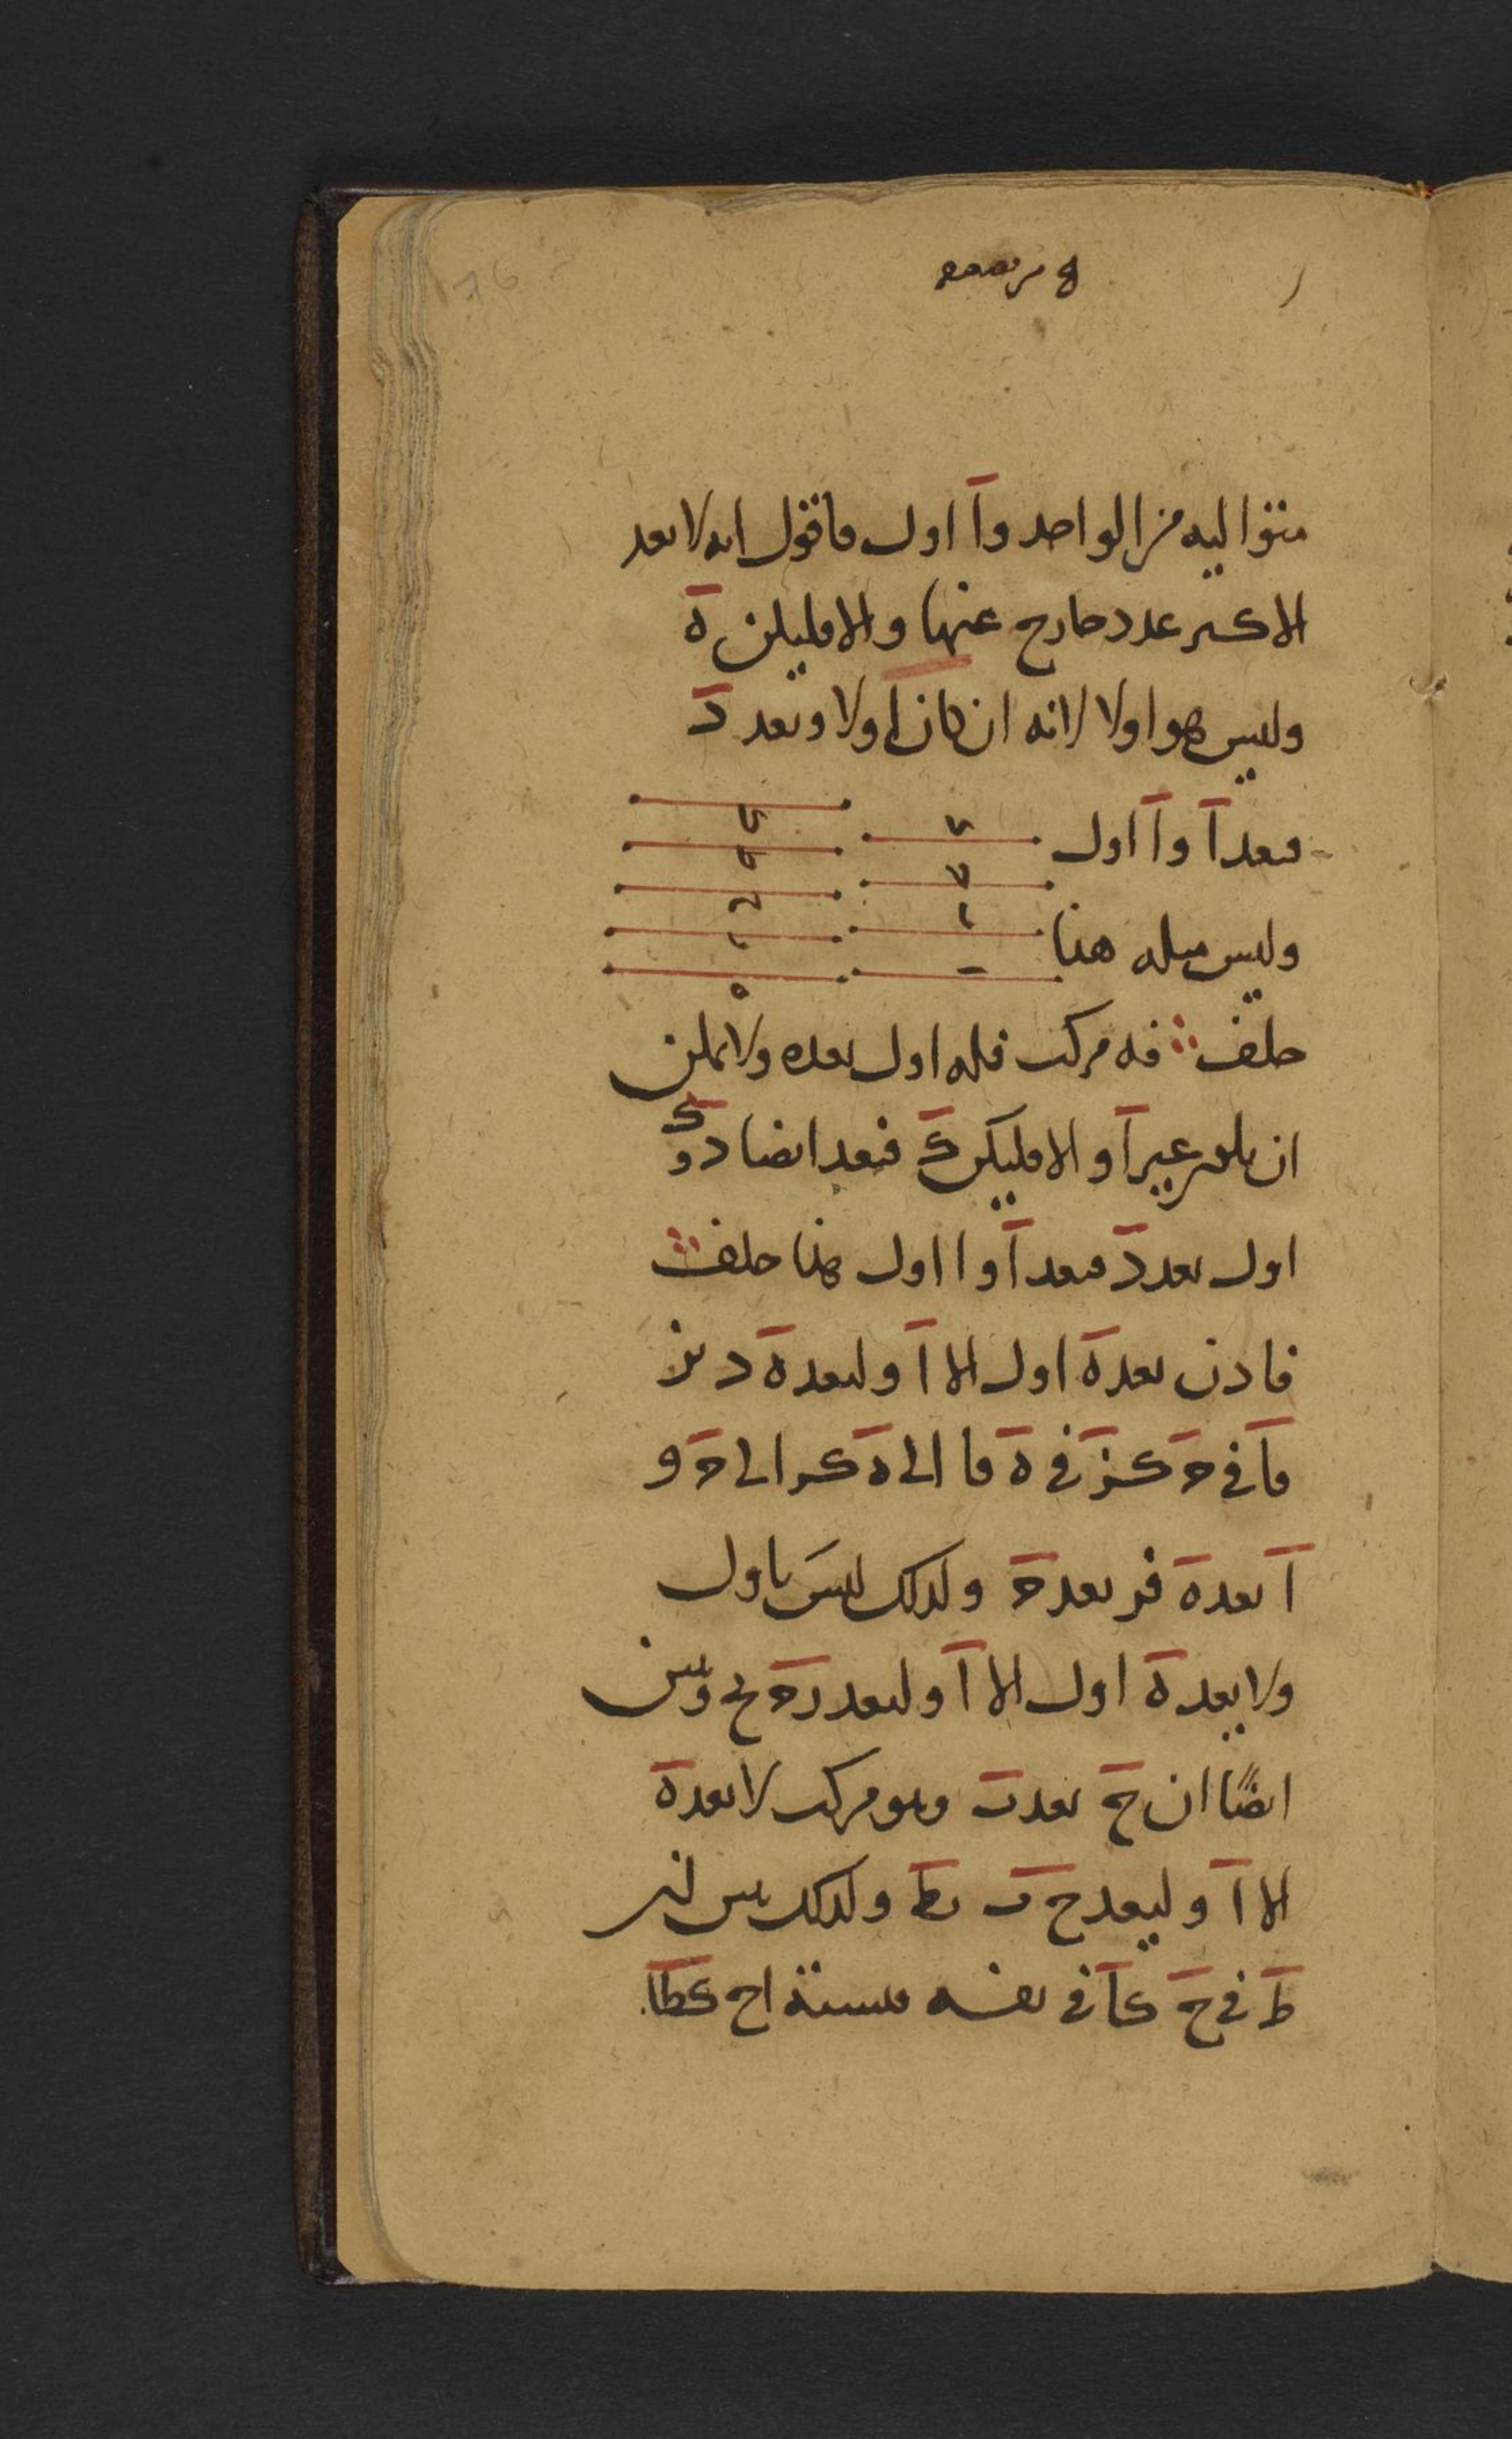 16
متواليه من الواحد وا اول فاقول انه لا يعد
الاكبر عدد خارج عنها والا فليكن ه
وليس هو اولا لانه ان كان اولا ويعد د
فيعد ا وا اول
وليس مثله هذا
خلف فه مركب فله اول يعده ولا يمكن
ان يكون غير ا والا فليكن ك فيعد ايضا د وك
اول يعد د فيعد ا وا اول هذا خلف
فاذن يعد ه اول الا ا وليعد ه د بز
فا في ح كز في ه فا الى ه كز الى ح و
ا يعد ه فز يعد ح ولذلك ليس باول
ولا يعد ه اول الا ا وليعد ز ح بح وتبين
ايضا ان ح يعد ب وهو مركب لا يعده
الا ا وليعد ح ب بط ولذلك يس لنر
ط في ح كا في نفسه فنسبة ا ح كط ا